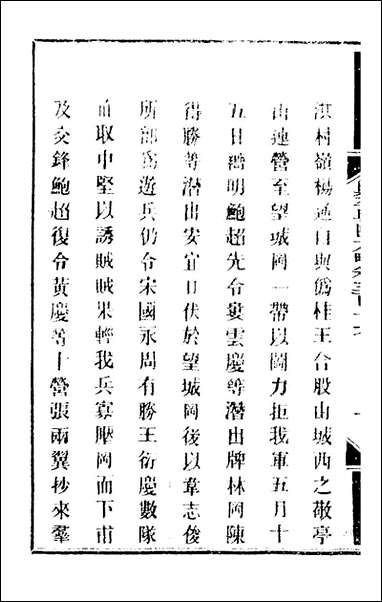 洪村嶺楊逋日與僞桂王合股由城西之敬亭
山連營至望城岡一帶以圖力拒我軍五月十
五日黎明鮑超先令婁雲慶等潛出牌林岡陳
得勝等潛出安宜日伏於望城岡後以韋志俊
所部爲遊兵仍令宋國永周有勝王衍慶數隊
直取中堅以誘賊賊果輕我兵寡壓岡而下甫
及交鋒鮑超復令黃慶等十營張兩翼抄來羣